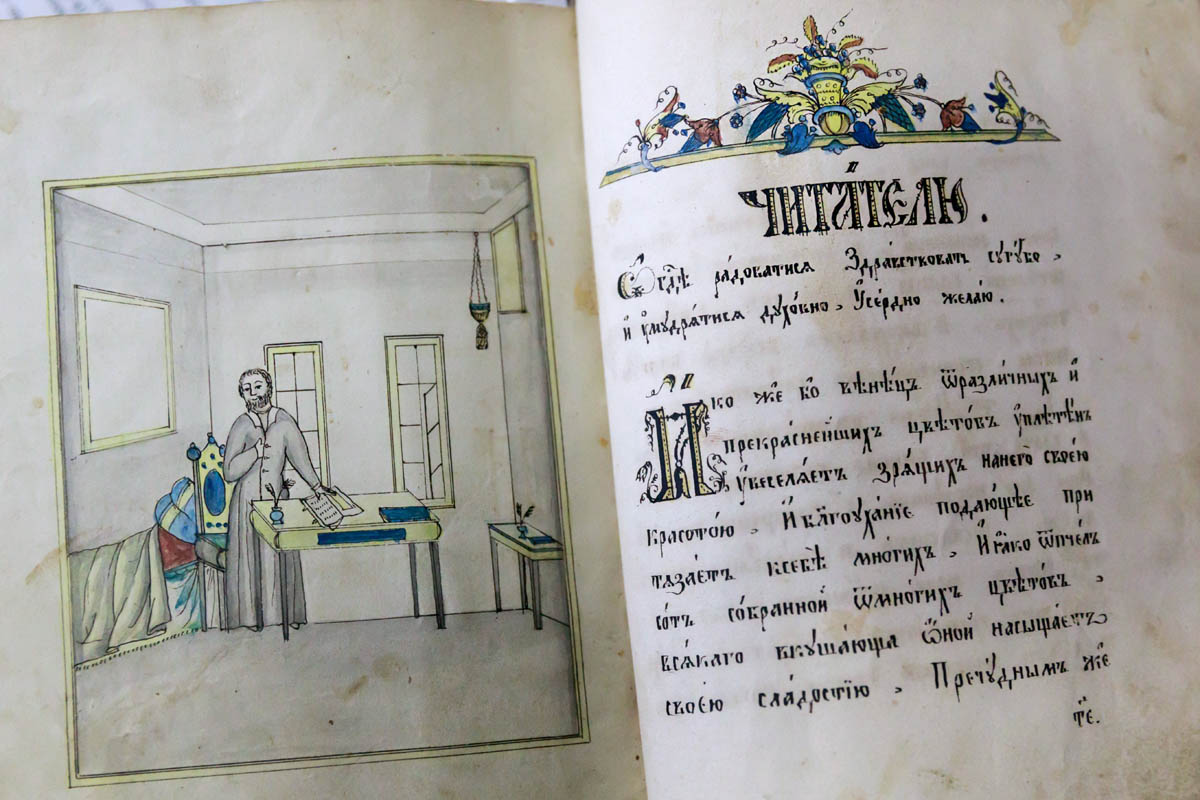 Чита́телю .
Ѡ гдⷭ҇ѣ ра́доватися Здра́вствовать сугу́бо ,
и҆ ᲂу҆мудря́тися духо́вно , Оу҆се́рдно жела́ю .
Ꙗ҆́ко же бо вѣне́цъ ѿразли́чныхъ и҆
прекра́снейшихъ цвѣто́въ ᲂу҆плете́нъ
ᲂу҆веселѧ́етъ зря́щихъ нанего̀ свое́ю
красото́ю , И҆ благоуха́нїе подаю́щее при
тѧза́етъ ксебѣ̀ мно́гихъ , И҆ ꙗ҆́ко ѿпче́лъ
со́тъ со́бранной ѿмно́гихъ цвѣто́въ ,
вся́каго вкуша́юща ѻ҆́ной насыща́етъ
свое́ю сла́достїю , Пречу́днымъ же
те.